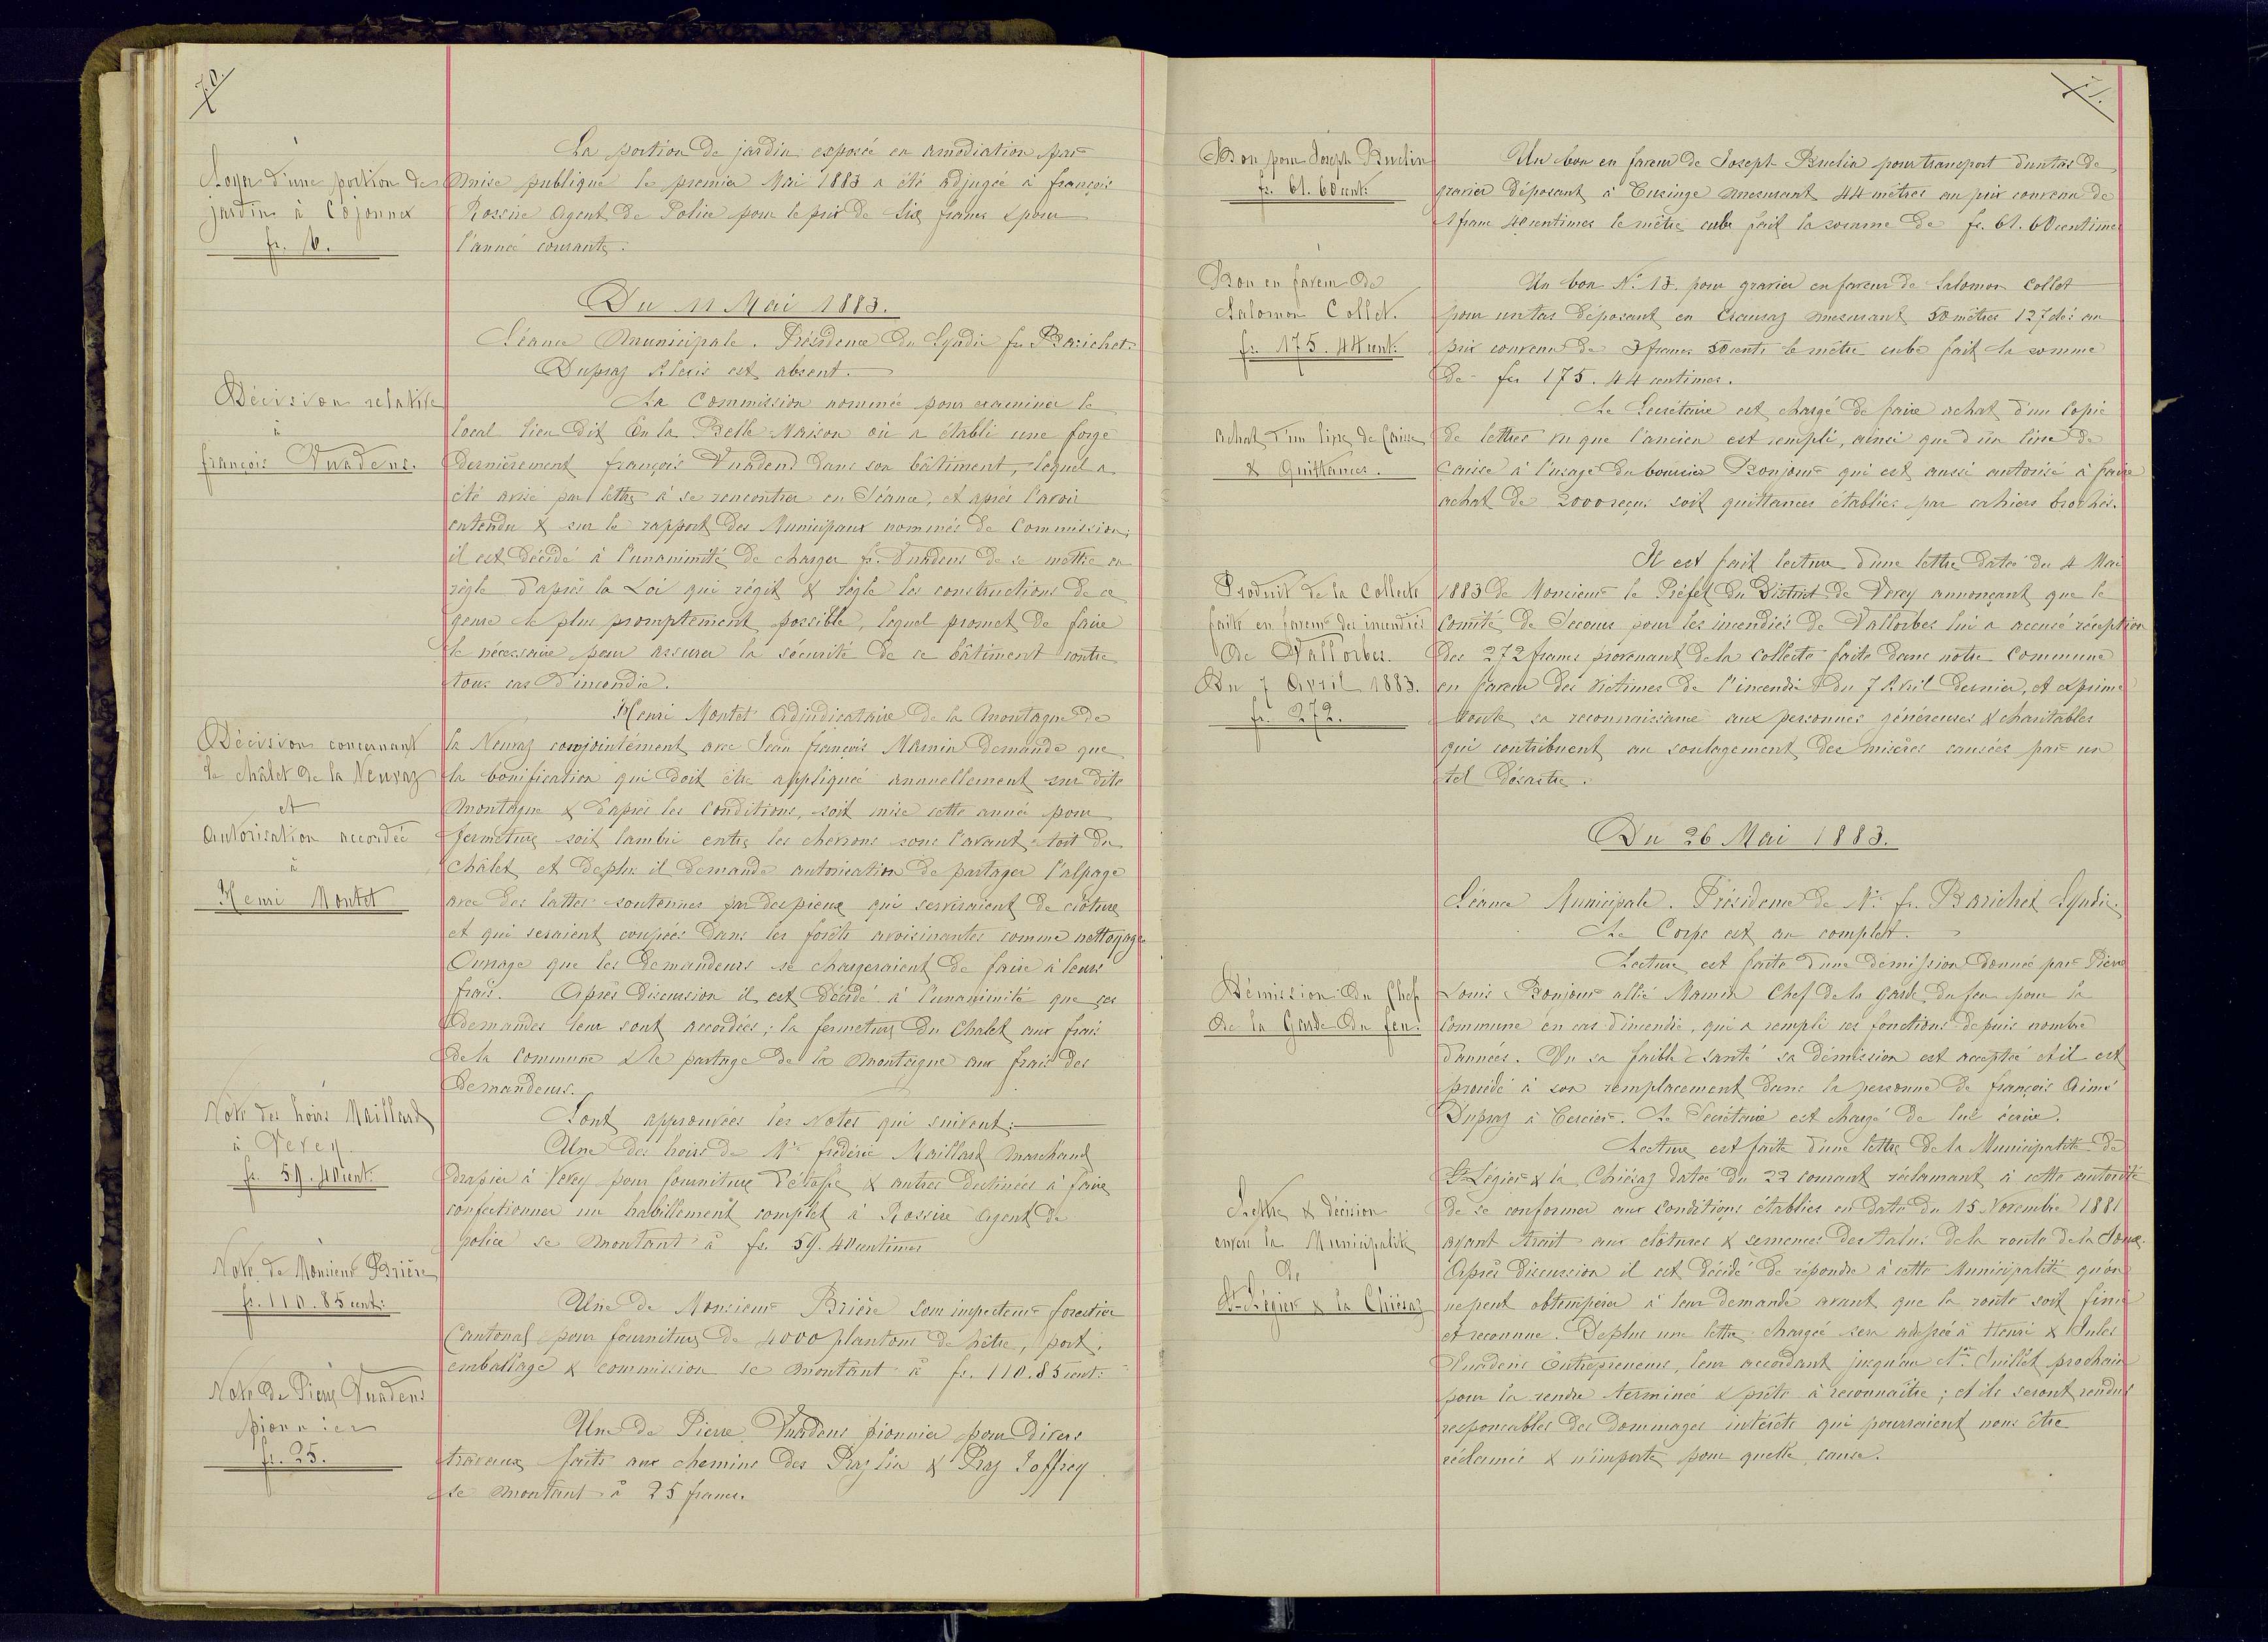 70.
La portion de jardin exposée en amodiation par
Loyer d'une portion de
jardin à Cojonnex
fr. 6.
mise publique le premier Mai 1883 a été adjugée à françois
Rossire Agent de Police pour le prix de Six francs & pour
l'année courante.
Du 11 Mai 1883.
Séance Municipale. Présidence du Syndic fs. Barichet.
Dupraz Alexis est absent.
Décision relative
à
françois Vuadens.
La Commission nommée pour examiner le
local lieu dit En la Belle Maison où a établi une forge
dernièrement françois Vuadens dans son bâtiment, lequel a
été avisé par lettre à se rencontrer en Séance, et après l'avoir
entendu & sur le rapport des Municipaux nommés de Commission;
il est décidé à l'unanimité de charger fs. Vuadens de se mettre en
règle d'après la Loi qui régit & règle les constructions de ce
genre le plus promptement possible, lequel promet de faire
le nécessaire pour assurer la sécurité de ce bâtiment contre
tous cas d'incendie.
Décisions concernant
le châlet de la Neuvaz
et
Autorisation accordée
à
Henri Montet
Henri Montet adjudicataire de la Montagne de
la Neuvaz conjointement avec Jean françois Mamin demande que
la bonification qui doit être appliquée annuellement sur dite
Montagne & d'après les conditions, soit mise cette année pour
fermeture soit lambri entre les chevrons sous l'avant-toit du
châlet, et de plus il demande autorisation de partager l'alpage
avec des lattes soutenues par des pieux qui serviraient de clôture
et qui seraient coupées dans les forêts avoisinantes comme nettoyage
Ouvrage que les demandeurs se chargeraient de faire à leurs
frais. Après discussion il est décidé à l'unanimité que ces
demandes leur sont accordées; la fermeture du Chalet aux frais
de la Commune & le partage de la Montagne aux frais des
demandeurs.
Note des hoirs Maillard
à Vevey.
fr. 59. 40 cent:
Sont approuvées les Notes qui suivent:
Une des hoirs de Mr. frédéric Maillard marchand
drapier à Vevey pour fourniture d'étoffe & autres destinées à faire
confectionner un habillement complet à Rossire Agent de
police se montant à fr. 59. 40 centimes
Note de Monsieur Brière
fr. 110. 85 cent:
Une de Monsieur Brière sous inspecteur forestier
Cantonal pour fourniture de 4000 plantons de hêtre, port,
emballage & commission se montant à fr. 110. 85 cent:
Note de Pierre Vuadens
pionnier
fr. 25.
Une de Pierre Vuadens pionnier pour divers
travaux faits aux chemins des Praz lia & Praz Joffrey
se montant à 25 francs.
71.
Bon pour Joseph Buclin
fr. 61. 60 cent:
Un bon en faveur de Joseph Buclin pour transport d'un tas de
gravier déposant à Cusinge mesurant 44 mètres au prix convenu de
1 franc 40 centimes le mètre cube fait la somme de fr. 61. 60 centimes
Bon en faveur de
Salomon Collet.
fr. 175. 44 cent:
Un bon No. 13. pour gravier en faveur de Salomon Collet
pour un tas déposant en Crausaz mesurant 50 mètres 127 dés: au
prix convenu de 3 francs 50 cents le mètre cube fait la somme
de frs 175. 44 centimes.
Achat d'un livre de Caisse
& Quittances.
Le Secrétaire est chargé de faire achat d'un Copie
de lettres vu que l'ancien est rempli, ainsi que d'un livre de
Caisse à l'usage du boursier Bonjour qui est aussi autorisé à faire
achat de 2000 reçus soit quittances établies par cahiers brochés.
Produit de la Collecte
faite en faveur des incendiés
de Vallorbes.
Du 7 Avril 1883.
fr. 272.
Il est fait lecture d'une lettre datée du 4 Mai
1883 de Monsieur le Préfet du District de Vevey annonçant que le
Comité de Secours pour les incendiés de Vallorbes lui a accusé réception
des 272 francs provenant de la Collecte faite dans notre Commune
en faveur des victimes de l'incendie du 7 Avril dernier, et exprime
toute sa reconnaissance aux personnes généreuses & charitables
qui contribuent au soulagement des misères causées par un
tel désastre.
Du 26 Mai 1883.
Séance Municipale. Présidence de Mr. fs. Barichet Syndic
Le Corps est au complet.
Démission du Chef
de la Garde du feu.
Lecture est faite d'une démission donnée par Pierre
Louis Bonjour allié Mamin Chef de la Garde du feu pour la
Commune en cas d'incendie, qui a rempli ces fonctions depuis nombre
d'années. Vu sa faible santé sa démission est acceptée et il est
procédé à son remplacement dans la personne de françois Aimé
Dupraz à Cercier. Le Secrétaire est chargé de lui écrire.
Lettre & décision
envers la Municipalité
de
St. Légier & la Chiésaz
Lecture est faite d'une lettre de la Municipalité de
St. Légier & la Chiésaz datée du 22 courant réclamant à cette autorité
de se conformer aux conditions établies en date du 15 Novembre 1881
ayant trait aux clôtures & semences des talus de la route de la Joux.
Après discussion il est décidé de répondre à cette Municipalité qu'on
ne peut obtempérer à leur demande avant que la route soit finie
et reconnue. De plus une lettre chargée sera adressée à Henri & Jules
Vuadens Entrepreneurs, leur accordant jusqu'au 1er. Juillet prochain
pour la rendre terminée & prête à reconnaître; et ils seront rendus
responsables des dommages intérêts qui pourraient nous être
réclamés & n'importe pour quelle cause.